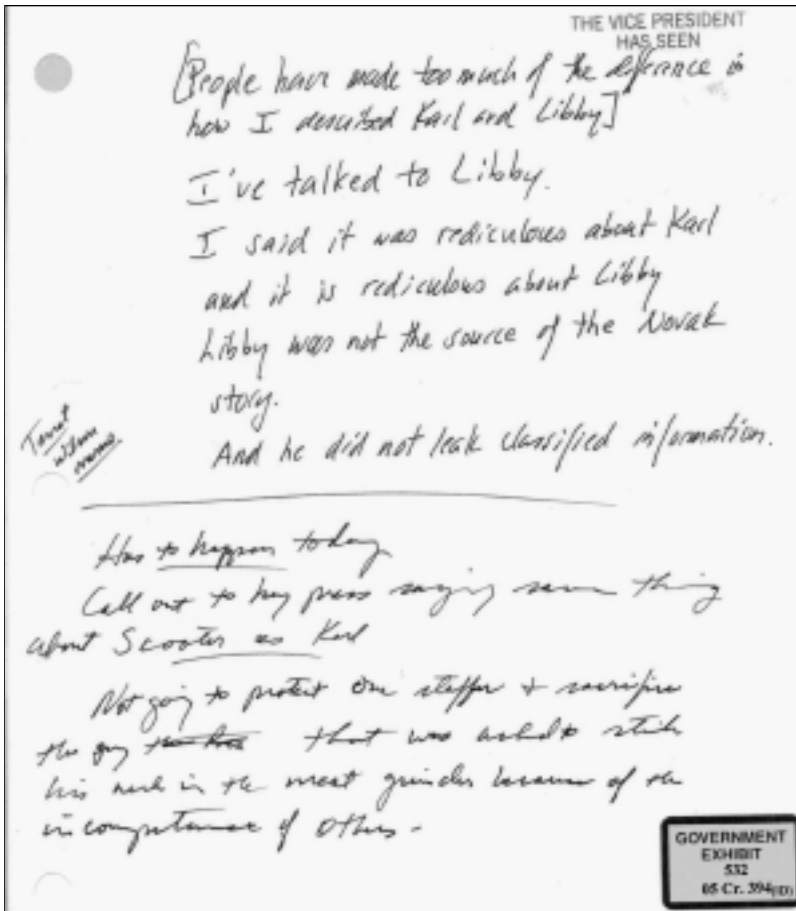 THE VICE PRESIDENT
HAS SEEN
[People have made too much of the difference in
how I described Karl and Libby]
I've talked to Libby.
I said it was rediculous about Karl
and it is rediculous about Libby
Libby was not the source of the Novak
story.
And he did not leak classified information.
Has to happen today
Call out to key press saying same thing
about Scooter as Karl
Not going to protect one staffer + sacrifice
the guy that was asked to stick
his neck in the meat grinder because of the
incompetence of others -
GOVERNMENT
EXHIBIT
532
05 Cr. 394(ID)